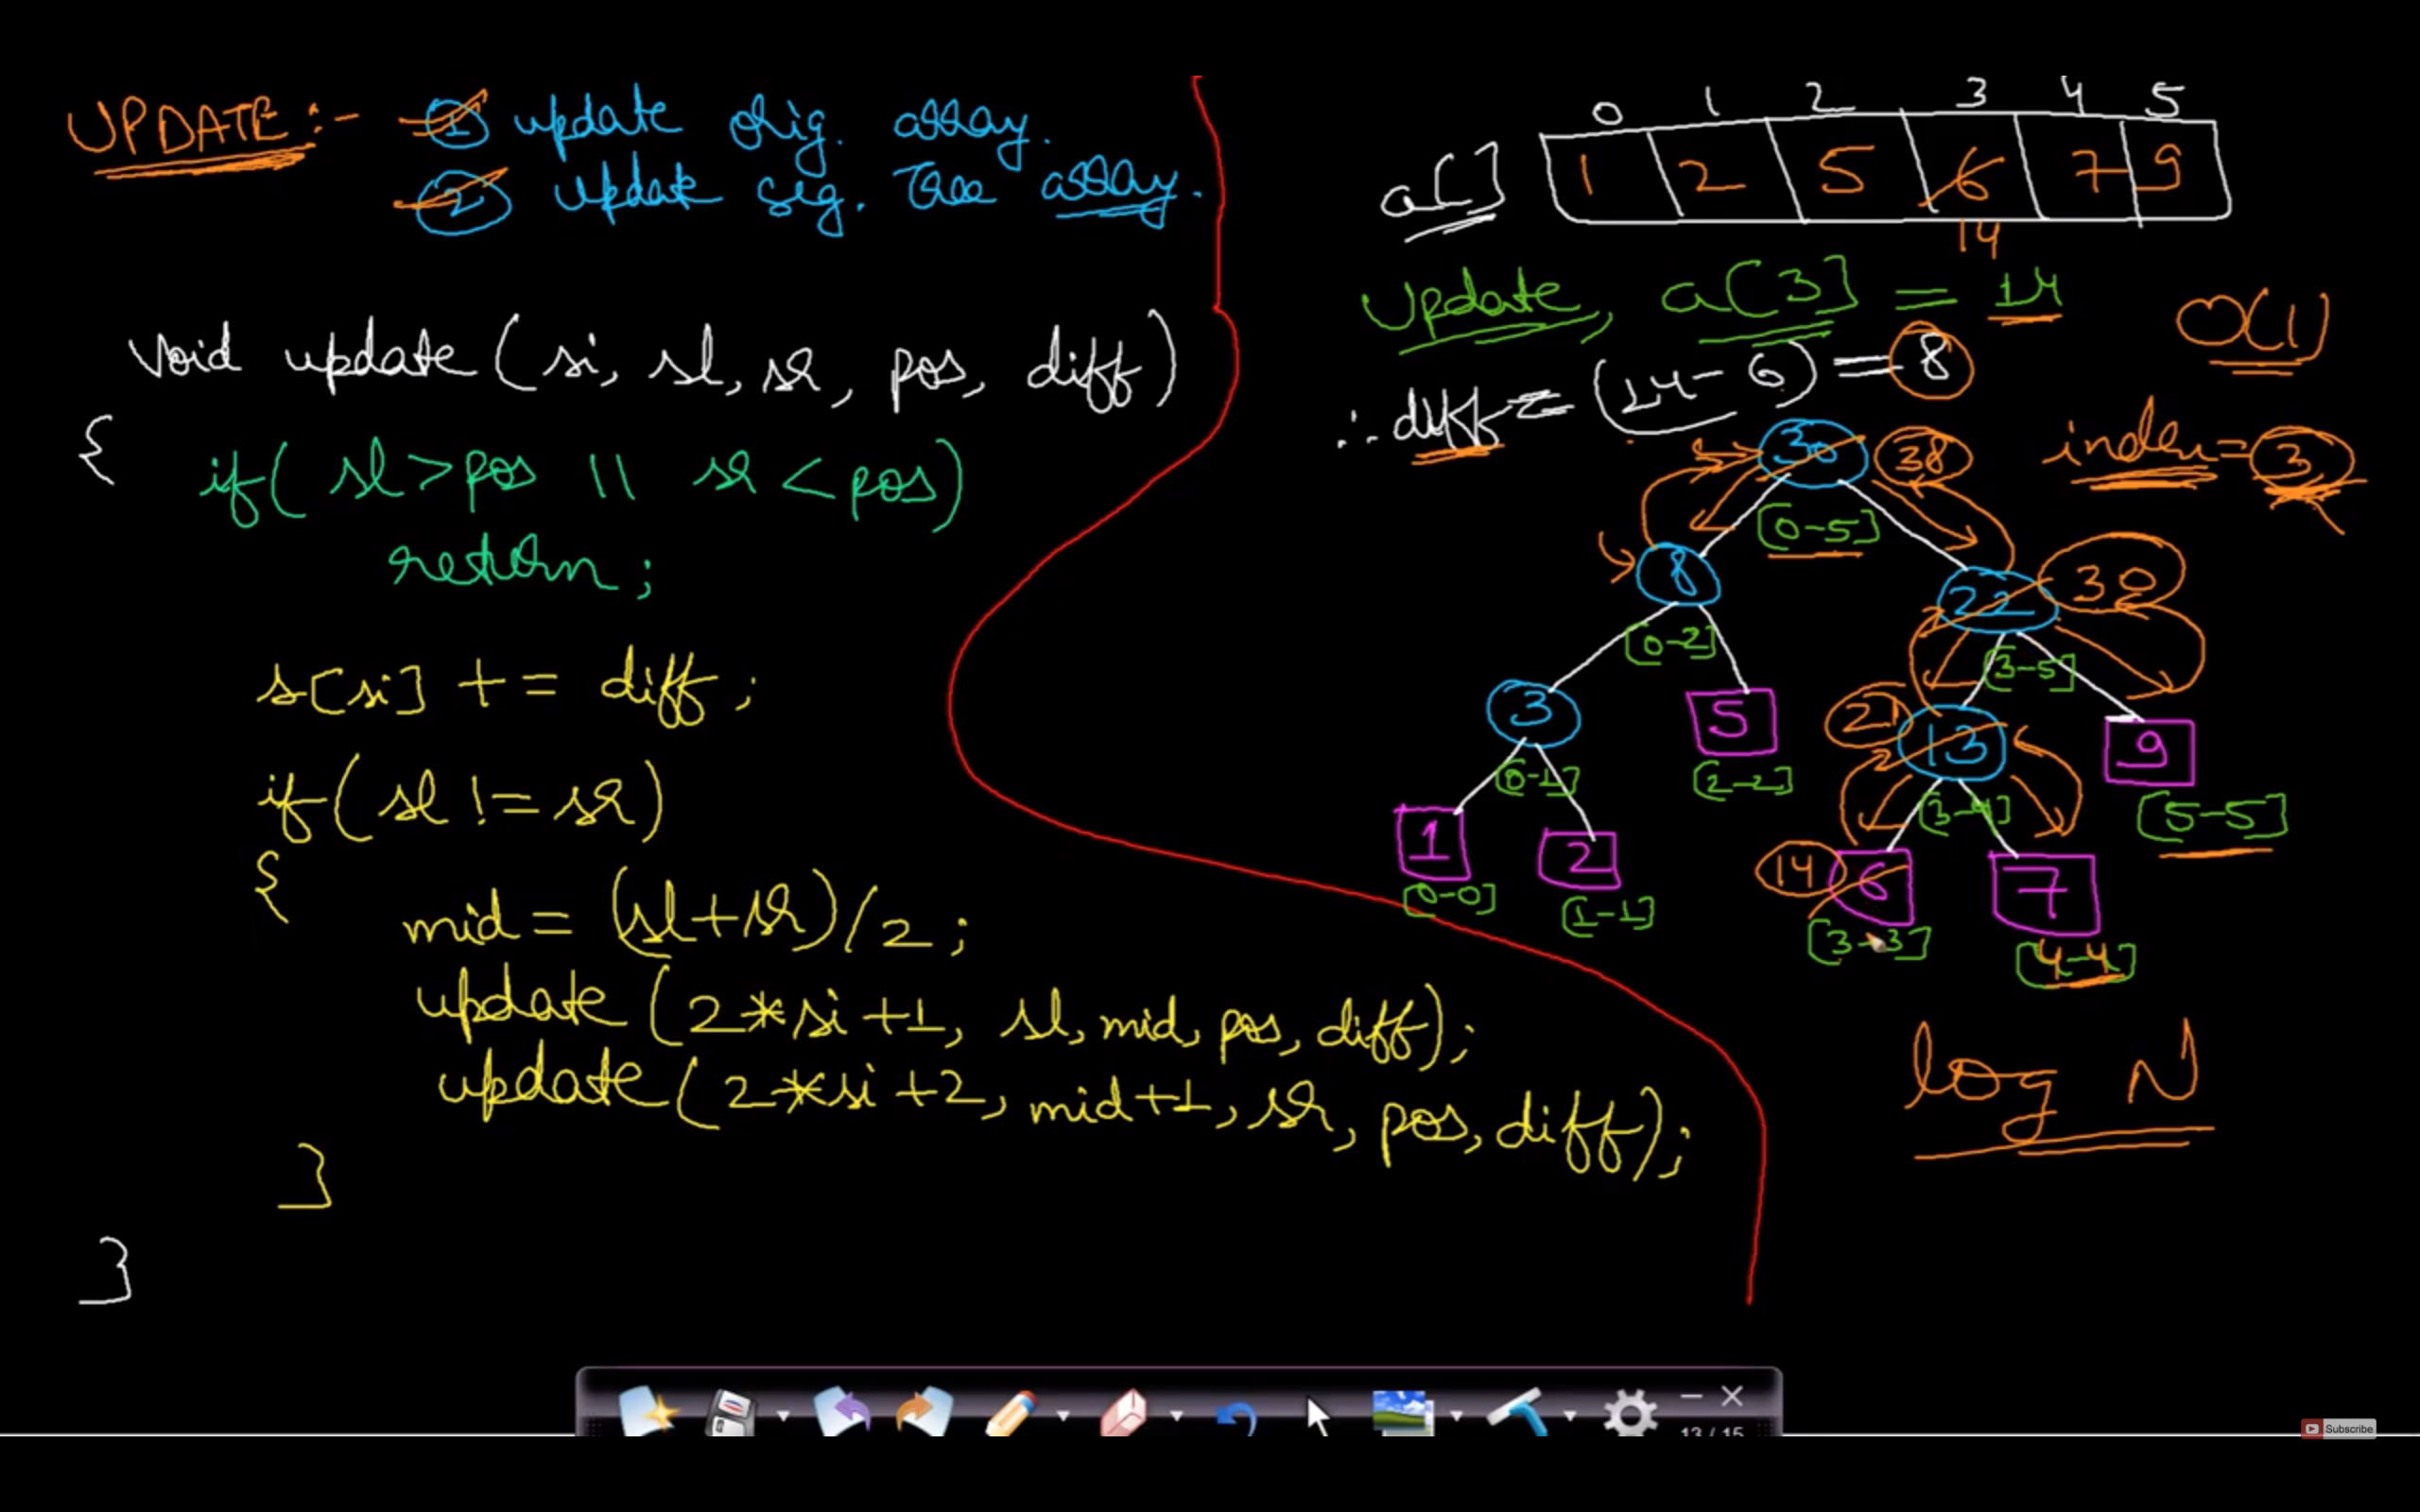 UPDATE:- ① update orig. array.
② update seg. Tree array.
void update (si, sl, sr, pos, diff)
{
if( sl > pos || sr < pos)
return;
s[si] += diff;
if( sl != sr)
{
mid = (sl+sr)/2;
update (2*si+1, sl, mid, pos, diff);
update (2*si+2, mid+1, sr, pos, diff);
}
}
0 1 2 3 4 5
a[] 1 2 5 6 7 9
14
Update, a[3] = 14
O(1)
∴ diff = (14-6) = 8
index = 3
30 38
[0-5]
8 22 30
[0-2] [3-5]
3 5 21 13 9
[0-1] [2-2] [3-4] [5-5]
1 2 14 6 7
[0-0] [1-1] [3-3] [4-4]
log N
13 / 15
Subscribe